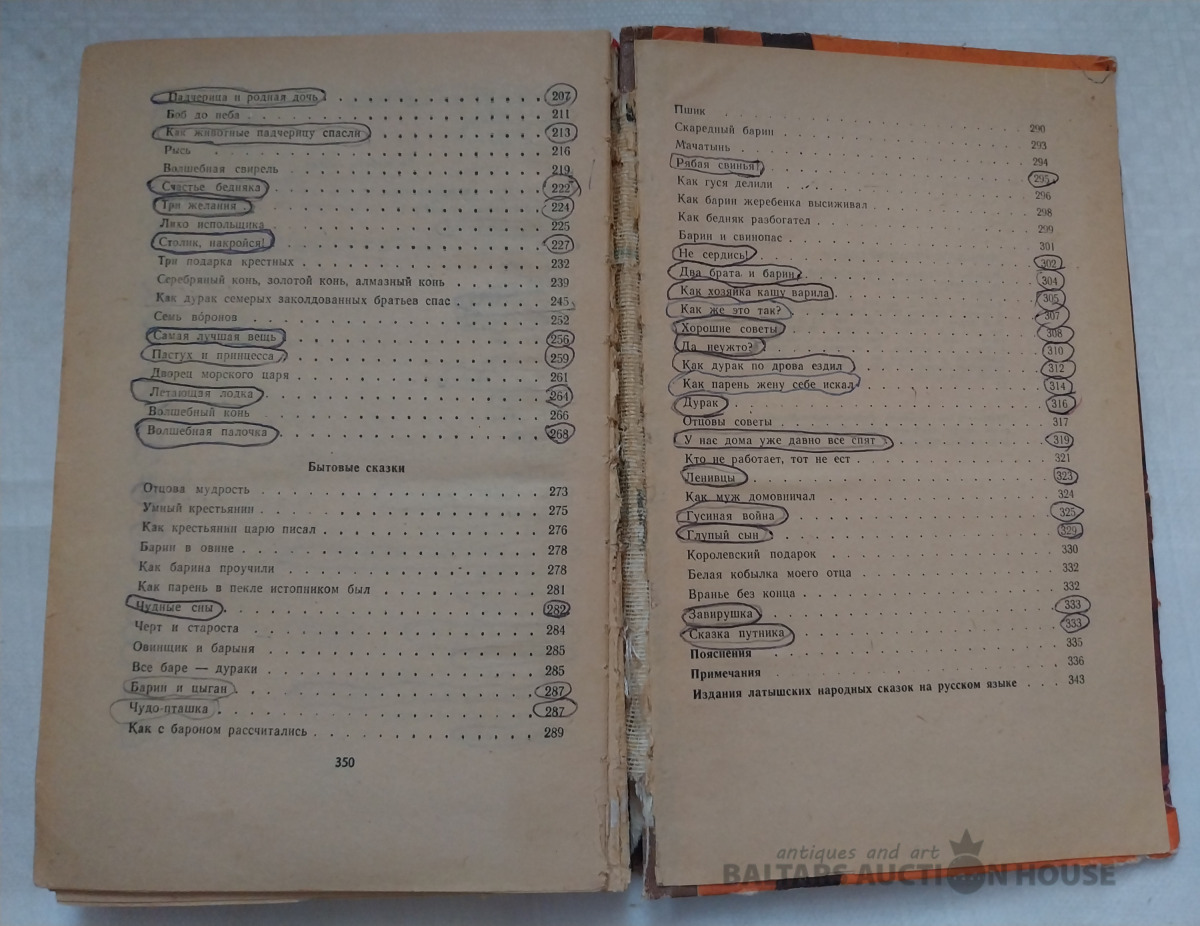 Падчерица и родная дочь . . . . . . . . . . 207
Боб до неба . . . . . . . . . . 211
Как животные падчерицу спасли . . . . . . . . . . 213
Рысь . . . . . . . . . . 216
Волшебная свирель . . . . . . . . . . 219
Счастье бедняка . . . . . . . . . . 222
Три желания . . . . . . . . . . 224
Лихо испольщика . . . . . . . . . . 225
Столик, накройся! . . . . . . . . . . 227
Три подарка крестных . . . . . . . . . . 232
Серебряный конь, золотой конь, алмазный конь . . . . . 239
Как дурак семерых заколдованных братьев спас . . . . . 245
Семь воронов . . . . . . . . . . 252
Самая лучшая вещь . . . . . . . . . . 256
Пастух и принцесса . . . . . . . . . . 259
Дворец морского царя . . . . . . . . . . 261
Летающая лодка . . . . . . . . . . 264
Волшебный конь . . . . . . . . . . 266
Волшебная палочка . . . . . . . . . . 268
Бытовые сказки
Отцова мудрость . . . . . . . . . . 273
Умный крестьянин . . . . . . . . . . 275
Как крестьянин царю писал . . . . . . . . . . 276
Барин в овине . . . . . . . . . . 278
Как барина проучили . . . . . . . . . . 278
Как парень в пекле истопником был . . . . . . . . 281
Чудные сны . . . . . . . . . . 282
Черт и староста . . . . . . . . . . 284
Овинщик и барыня . . . . . . . . . . 285
Все баре — дураки . . . . . . . . . . 285
Барин и цыган . . . . . . . . . . 287
Чудо-пташка . . . . . . . . . . 287
Как с бароном рассчитались . . . . . . . . . . 289
350
Пшик . . . . . . . . . . 290
Скаредный барин . . . . . . . . . . 293
Мачатынь . . . . . . . . . . 294
Рябая свинья! . . . . . . . . . . 295
Как гуся делили . . . . . . . . . . 296
Как барин жеребенка высиживал . . . . . . . . 298
Как бедняк разбогател . . . . . . . . . . 299
Барин и свинопас . . . . . . . . . . 301
Не сердись! . . . . . . . . . . 302
Два брата и барин . . . . . . . . . . 304
Как хозяйка кашу варила . . . . . . . . . . 305
Как же это так? . . . . . . . . . . 307
Хорошие советы . . . . . . . . . . 308
Да неужто? . . . . . . . . . . 310
Как дурак по дрова ездил . . . . . . . . . . 312
Как парень жену себе искал . . . . . . . . . . 314
Дурак . . . . . . . . . . 316
Отцовы советы . . . . . . . . . . 317
У нас дома уже давно все спят . . . . . . . . 319
Кто не работает, тот не ест . . . . . . . . . . 321
Ленивцы . . . . . . . . . . 323
Как муж домовничал . . . . . . . . . . 324
Гусиная война . . . . . . . . . . 325
Глупый сын . . . . . . . . . . 329
Королевский подарок . . . . . . . . . . 330
Белая кобылка моего отца . . . . . . . . . . 332
Вранье без конца . . . . . . . . . . 332
Завирушка . . . . . . . . . . 333
Сказка путника . . . . . . . . . . 333
Пояснения . . . . . . . . . . 335
Примечания . . . . . . . . . . 336
Издания латышских народных сказок на русском языке . . . . 343
antiques and art
BALTARS AUCTION HOUSE